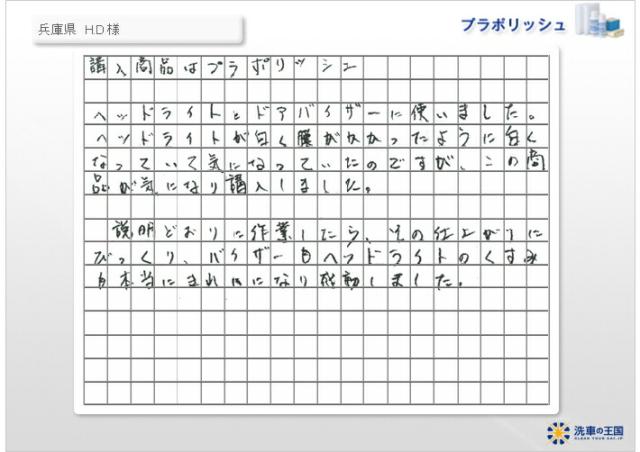 兵庫県 H.D様
プラポリッシュ
講入商品はプラポリッシュ
ヘッドライトとドアバイザーに使いました。
ヘッドライトが白く膜がかかったように白く
なっていて気になっていたのですが、この商
品が気になり講入しました。
説明どおりに作業したら、その仕上がりに
びっくり、バイザーもヘッドライトのくすみ
も本当にきれいになり感動しました。
洗車の王国
CLEAN YOUR CAR.JP